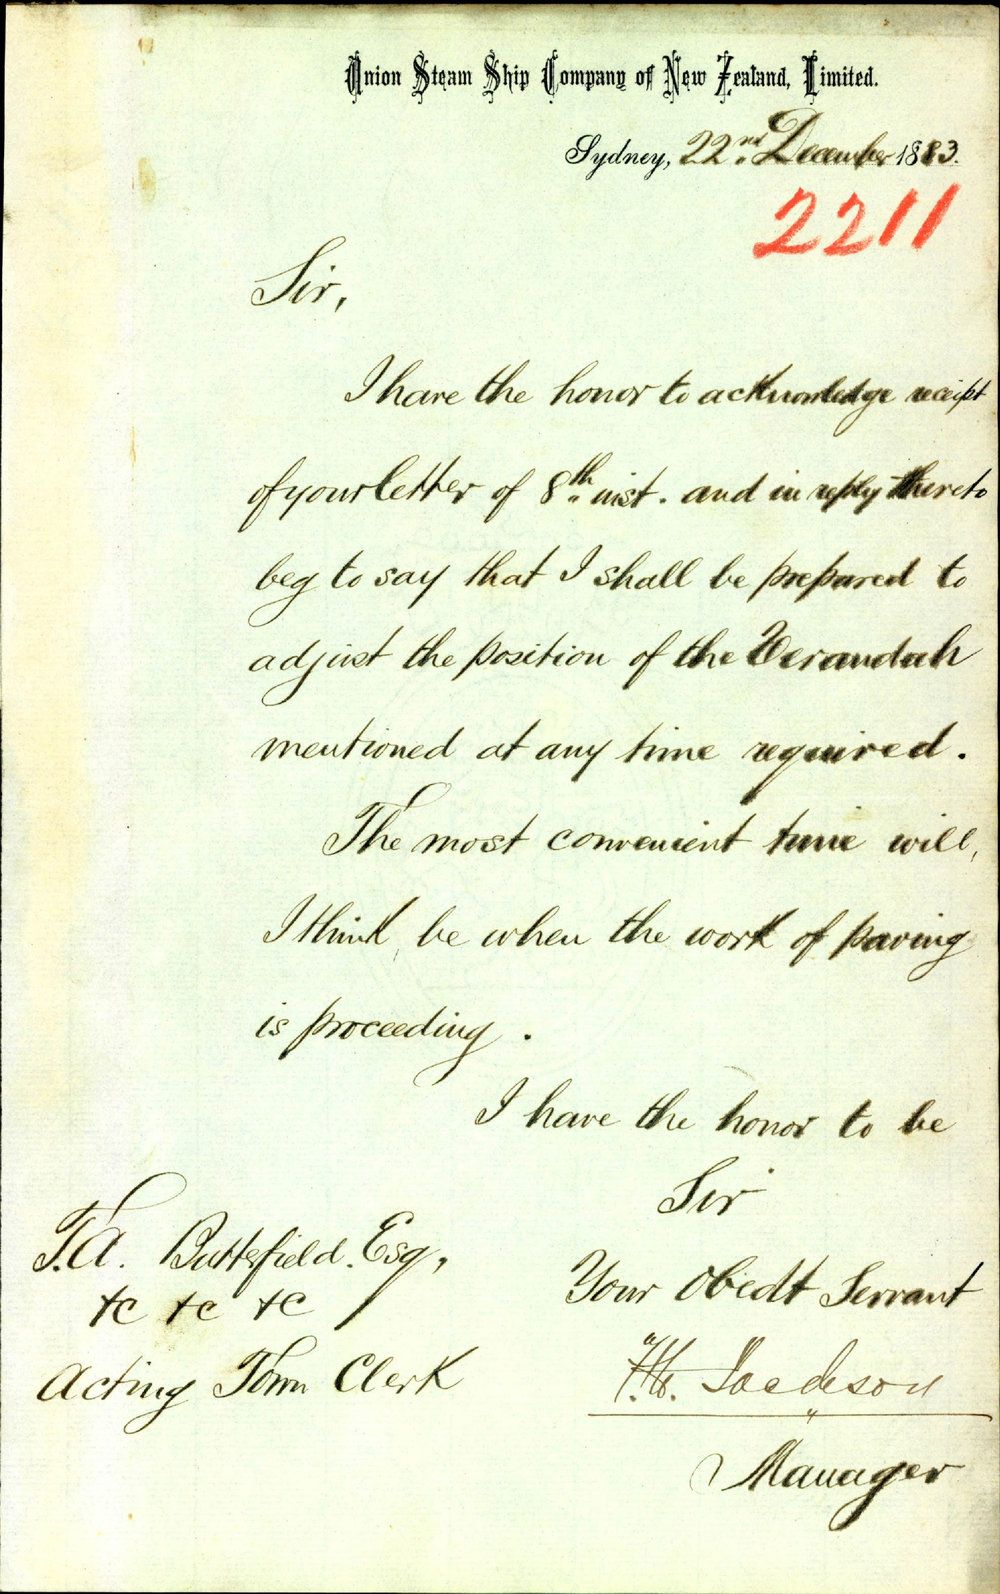 Union Steam Ship Company of New Zealand, Limited.
Sydney, 22nd December 1883.
2211
Sir,
I have the honor to acknowledge receipt
of your letter of 8th inst. and in reply thereto
beg to say that I shall be prepared to
adjust the position of the Verandah
mentioned at any time required.
The most convenient time will,
I think, be when the work of paving
is proceeding.
I have the honor to be
Sir
Your Obedt Servant
Jackson
Manager
T.A. Butterfield. Esq,
&c &c &c
Acting Town Clerk